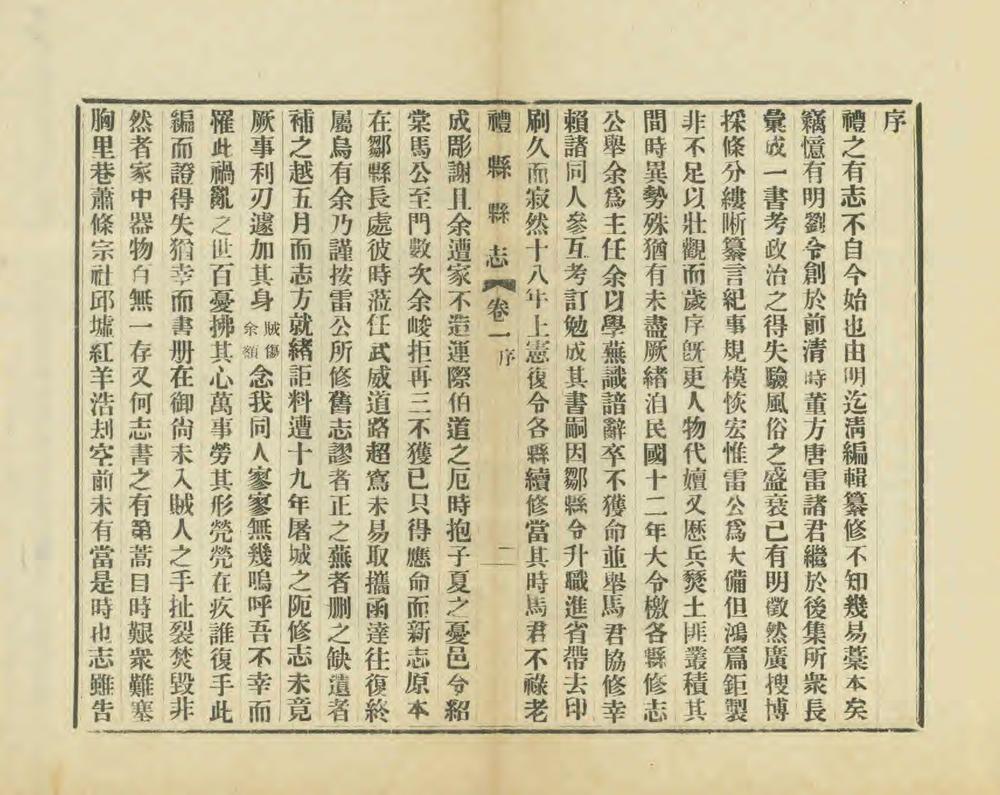 序
禮之有志不自今始也由明迄淸編輯纂修不知幾易藁本矣
竊憶有明劉令創於前清時董方唐雷諸君繼於後集所衆長
彙成一書考政治之得失驗風俗之盛衰已有明徵然廣搜博
採條分縷晰纂言紀事規模恢宏惟雷公爲大備但鴻篇鉅製
非不足以壯觀而歲序旣更人物代嬗又歷兵燹土匪叢積其
間時異勢殊猶有未盡厥緒洎民國十二年大令檄各縣修志
公舉余爲主任余以學蕪識諳辭卒不獲命並舉馬君協修幸
賴諸同人參互考訂勉成其書嗣因鄒縣令升職淮省帶去印
刷久而寂然十八年上憲復令各縣續修當其時馬君不祿老
禮縣縣志 卷一 序 二
成彫謝且余遭家不造運際伯道之厄時抱子夏之憂邑令紹
棠馬公至門數次余峻拒再三不獲已只得應命而新志原本
在鄒縣長處彼時蒞任武威道路超寫未易取攜函達往復終
屬烏有余乃謹按雷公所修舊志謬者正之蕪者删之缺遺者
補之越五月而志方就緒詎料遭十九年屠城之阨修志未竟
厥事利刃遽加其身賊傷余額念我同人寥寥無幾嗚呼吾不幸而
罹此禍亂之世百憂拂其心萬事勞其形煢煢在疚誰復手此
編而證得失猶幸而書册在御尙未入賊人之手扯裂焚毀非
然者家中器物百無一存又何志書之有第蒿目時艱衆難塞
胸里巷蕭條宗社邱墟紅羊浩刦空前未有當是時也志雖告